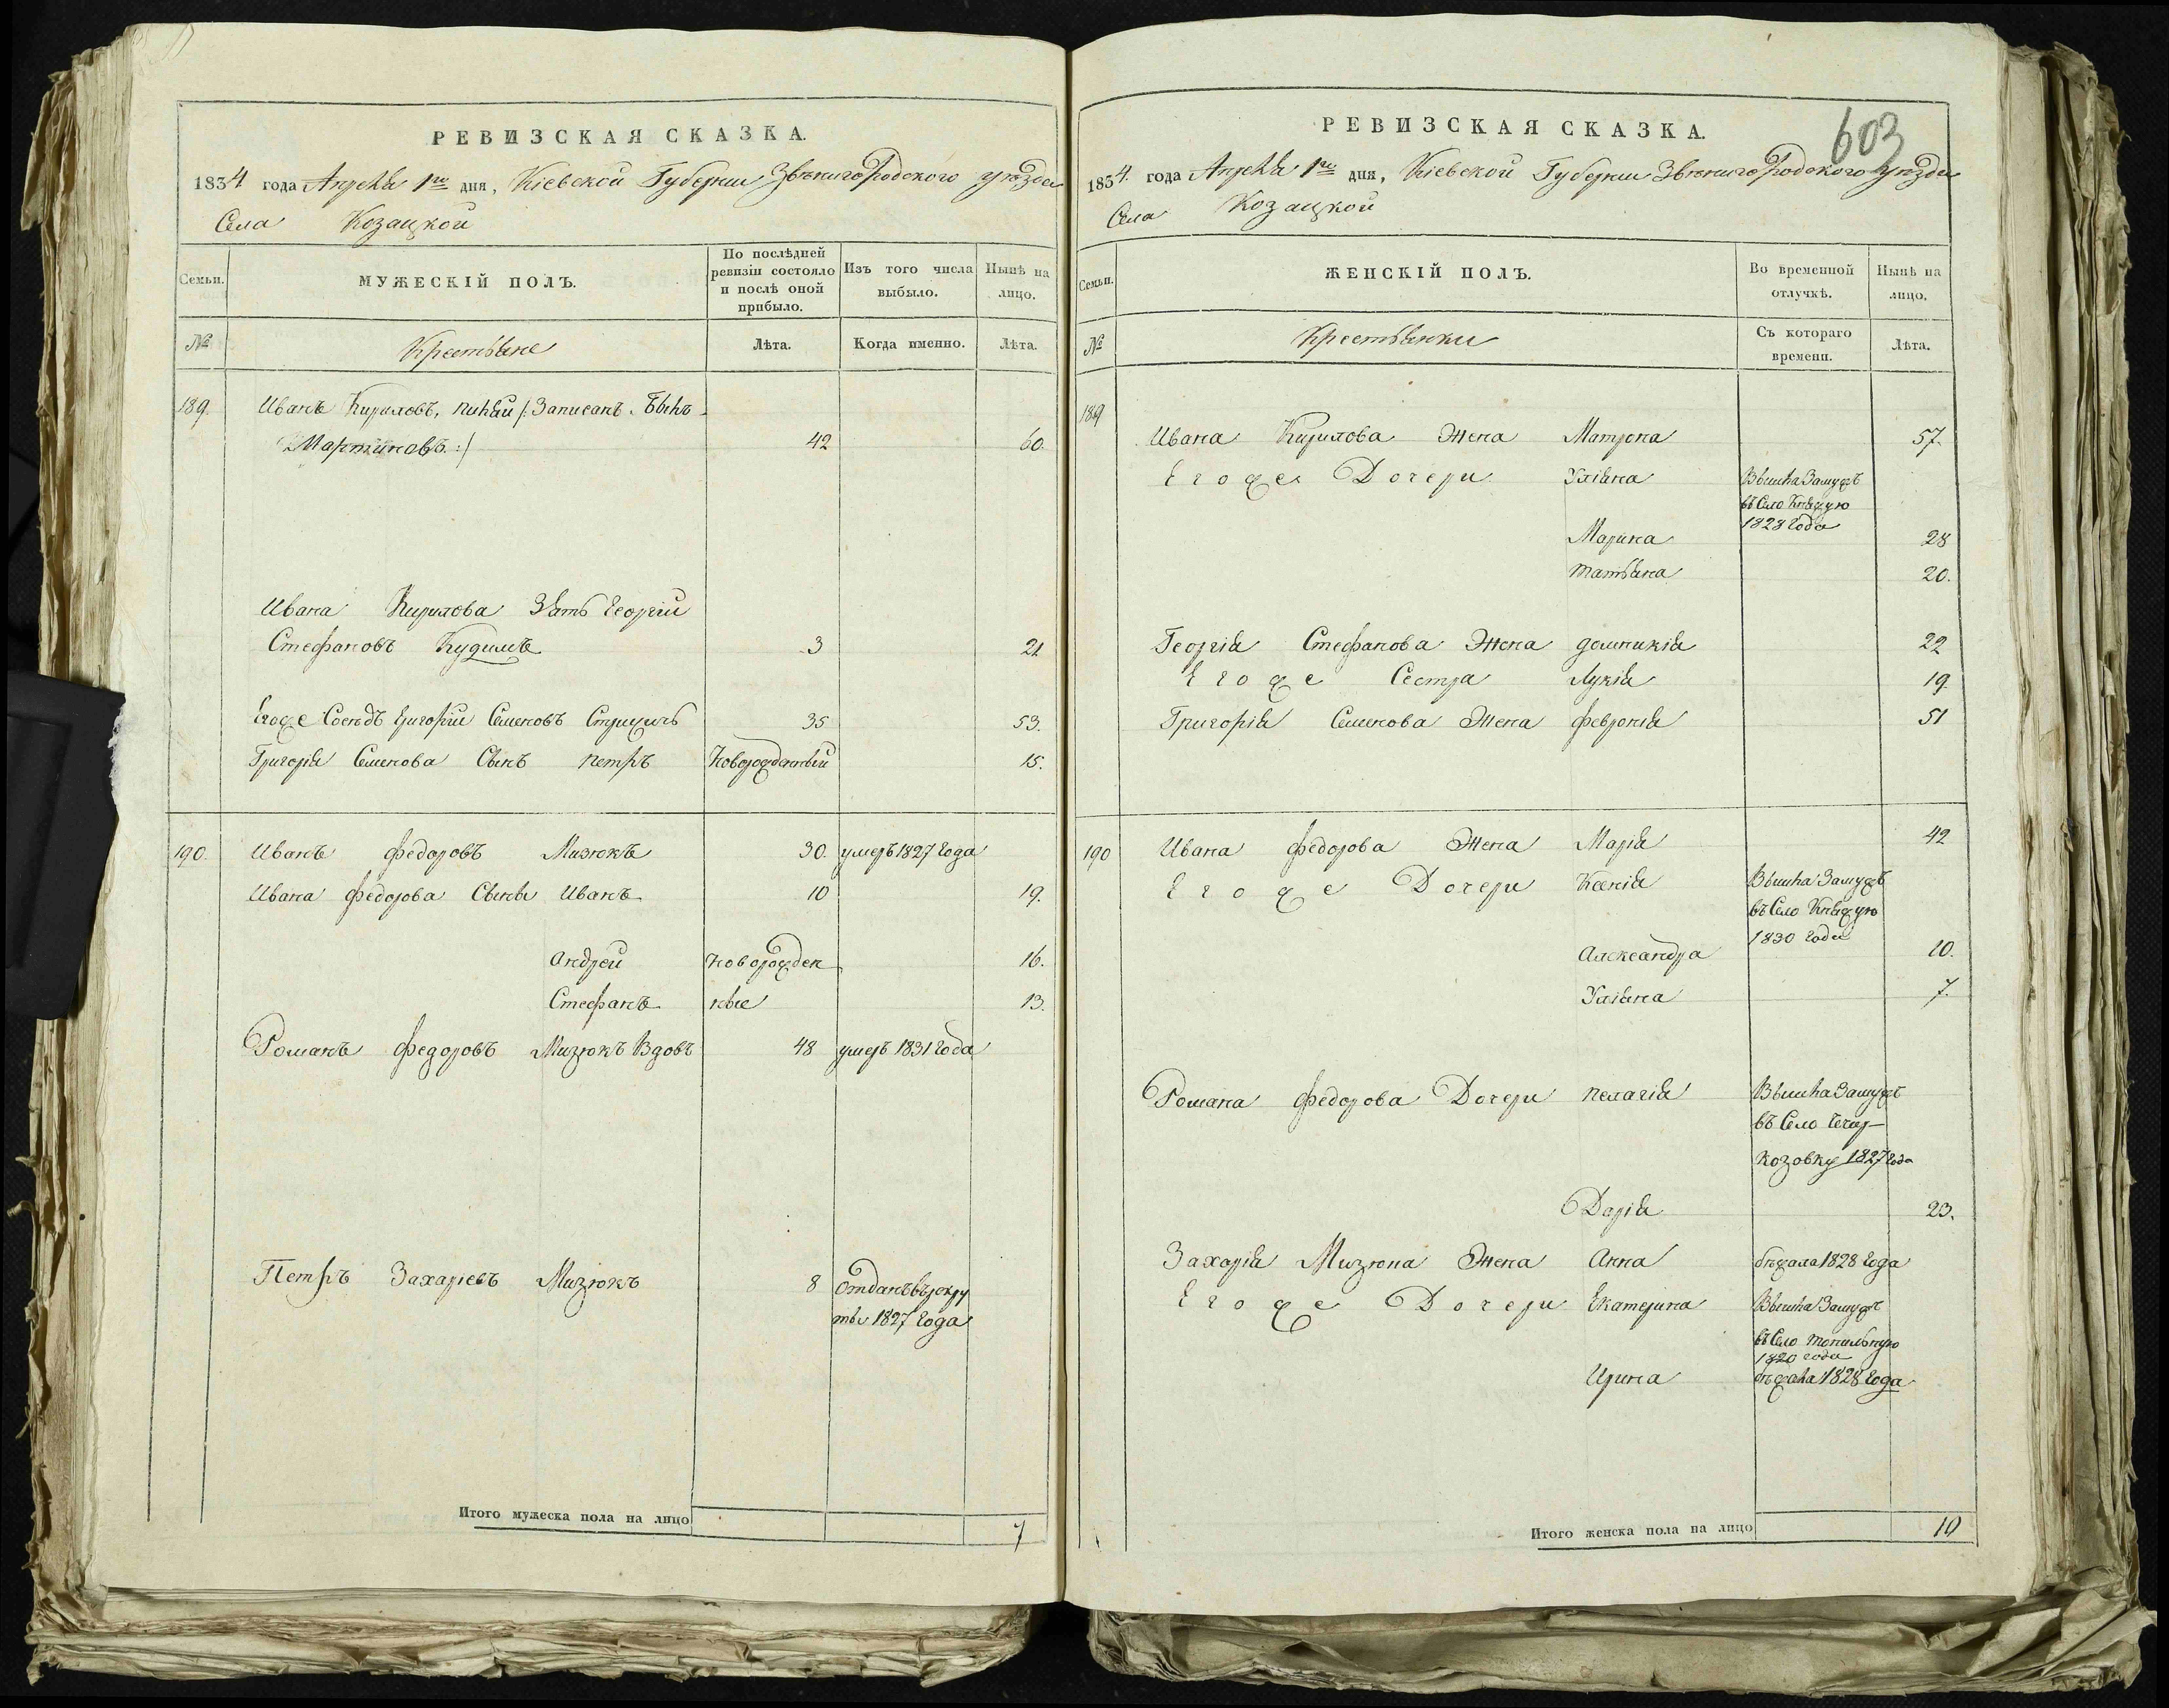 РЕВИЗСКАЯ СКАЗКА.
1834 года Апреля 1го дня, Кіевской Губерніи Звенигородского уѣзда
Села Козацкой
Семьи.
МУЖЕСКІЙ ПОЛЪ.
По послѣдней ревизіи состояло и послѣ оной прибыло.
Изъ того числа выбыло.
Нынѣ на лицо.
№
Крестьяне
Лѣта.
Когда именно.
Лѣта.
189. Иванъ Кириловъ, /: Записанъ
Мартиновъ :/ 42 60.
Ивана Кирилова Зять Георгій
Стефановъ 3 21
Егоже Сосѣдъ Григорій Семеновъ 35 53.
Григорія Семенова Сынъ петръ Новорожденный 15.
190. Иванъ федоровъ Мизюкъ 30. умеръ 1827 года
Ивана федорова Сыны Иванъ 10 19.
Андрей новорожден 16.
Стефанъ ные 13.
Романъ федоровъ Мизюкъ Вдовъ 48 умеръ 1831 года
Петръ Захаріевъ Мизюкъ 8 Отданъ въ рекру
ты 1827 года
Итого мужеска пола на лицо 7
603
РЕВИЗСКАЯ СКАЗКА.
1834. года Апреля 1го дня, Кіевской Губерніи Звенигородского уѣзда
Села Козацкой
Семьи.
ЖЕНСКІЙ ПОЛЪ.
Во временной отлучкѣ.
Нынѣ на лицо.
№
Крестьянки
Съ котораго времени.
Лѣта.
189
Ивана Кирилова Жена Матрона 57.
Егоже Дочери Уліяна Вышла Замужъ
въ Село Княжую
1828 Года
Марина 28
татьяна 20.
Георгія Стефанова Жена домникія 22
Егоже Сестра Лукія 19.
Григорія Семенова Жена февронія 51
190 Ивана федорова Жена Марія 42
Егоже Дочери Ксенія Вышла Замужъ
въ Село Княжую
1830 года
Александра 10.
Уліяна 7.
Романа федорова Дочери пелагія Вышла Замужъ
въ Село
козовку 1827 года
Дарія 23.
Захарія Мизюка Жена Анна бежала 1828 года
Егоже Дочери Екатерина Вышла Замужъ
въ Село топильную
1820 года
Ирина бежала 1828 Года
Итого женска пола на лицо 10